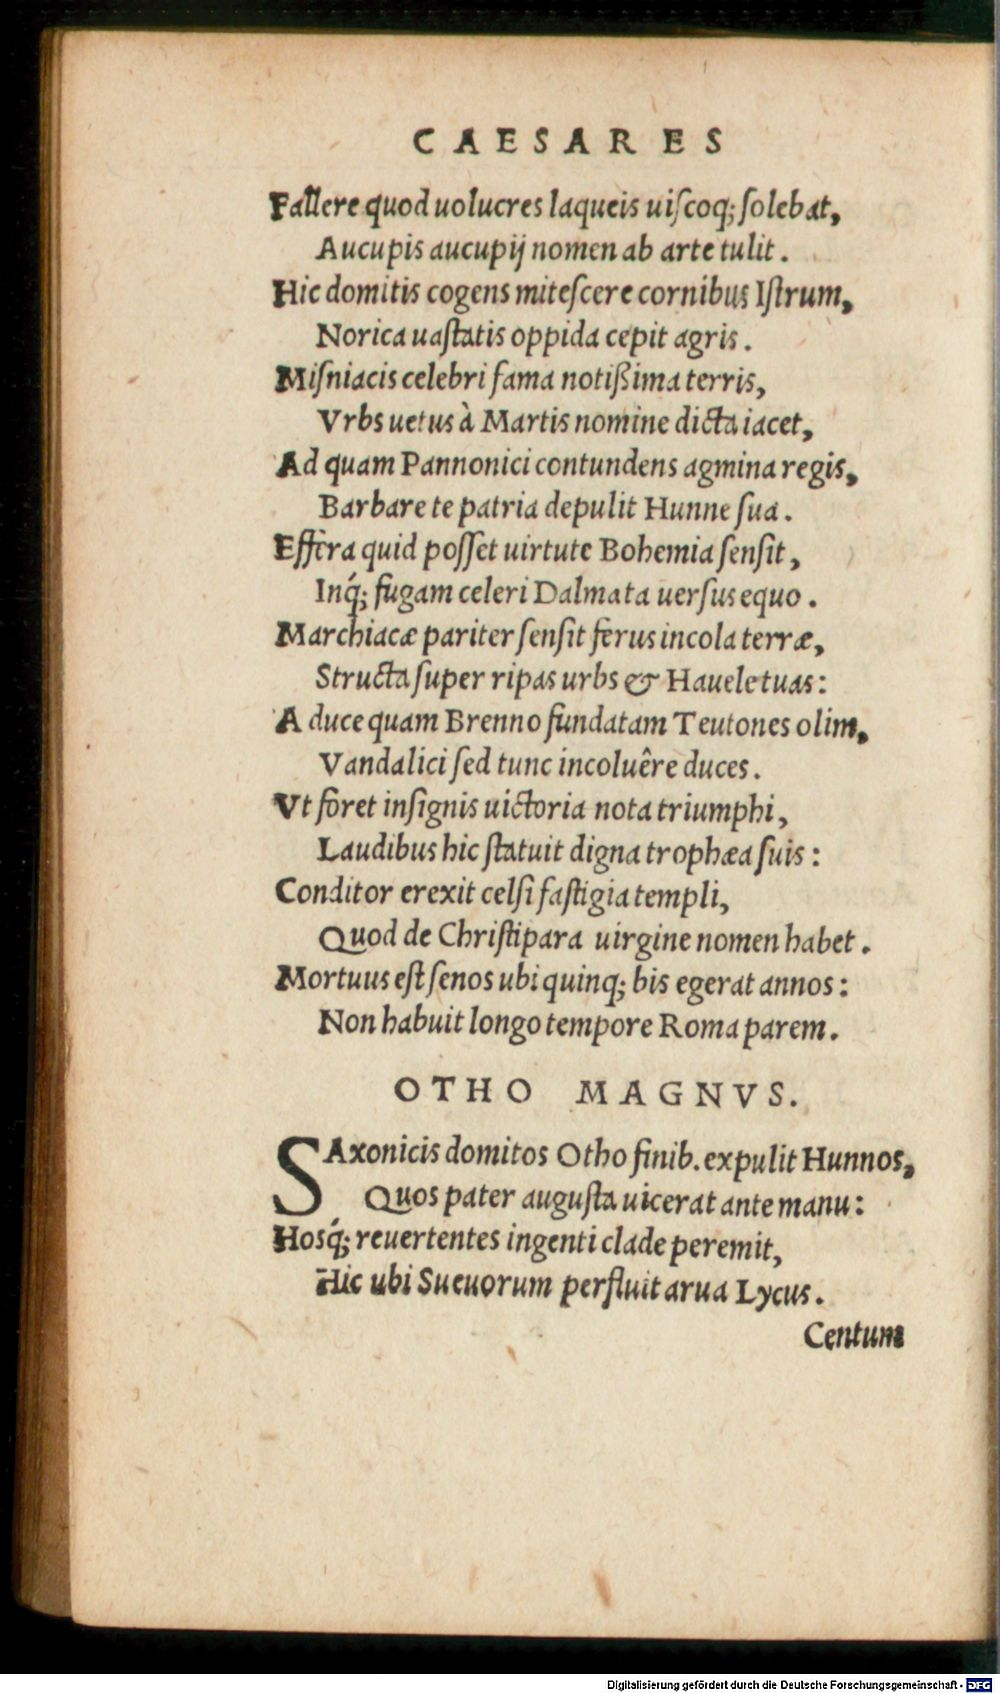 CAESARES
Fallere quod uolucres laqueis uiſcoq; ſolebat,
Aucupis aucupij nomen ab arte tulit.
Hic domitis cogens miteſcere cornibus Iſtrum,
Norica uaſtatis oppida cepit agris.
Miſniacis celebri fama notißima terris,
Vrbs uetus à Martis nomine dicta iacet,
Ad quam Pannonici contundens agmina regis,
Barbare te patria depulit Hunne ſua.
Effera quid poſſet uirtute Bohemia ſenſit,
Inq́; fugam celeri Dalmata uerſus equo.
Marchiacæ pariter ſenſit ferus incola terræ,
Structa ſuper ripas urbs & Hauele tuas:
A duce quam Brenno fundatam Teutones olim,
Vandalici ſed tunc incoluêre duces.
Vt foret inſignis uictoria nota triumphi,
Laudibus hic ſtatuit digna trophæa ſuis:
Conditor erexit celſi faſtigia templi,
Quod de Chriſtipara uirgine nomen habet.
Mortuus eſt ſenos ubi quinq; bis egerat annos:
Non habuit longo tempore Roma parem.
OTHO MAGNVS.
SAxonicis domitos Otho finib. expulit Hunnos,
Quos pater auguſta uicerat ante manu:
Hosq́; reuertentes ingenti clade peremit,
Hic ubi Sueuorum perfluit arua Lycus.
Centum
Digitalisierung gefördert durch die Deutsche Forschungsgemeinschaft - DFG